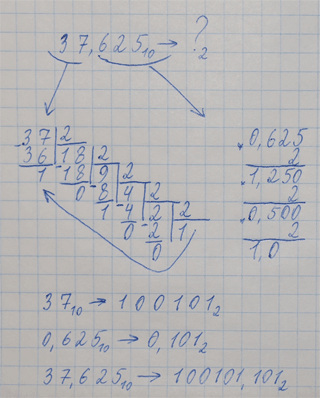 37,625₁₀ → ?₂
37 | 2
36 | 18 | 2
1 | 18 | 9 | 2
0 | 8 | 4 | 2
1 | 4 | 2 | 2
0 | 2 | 1
0
0,625
2
1,250
2
0,500
2
1,0
37₁₀ → 100101₂
0,625₁₀ → 0,101₂
37,625₁₀ → 100101,101₂